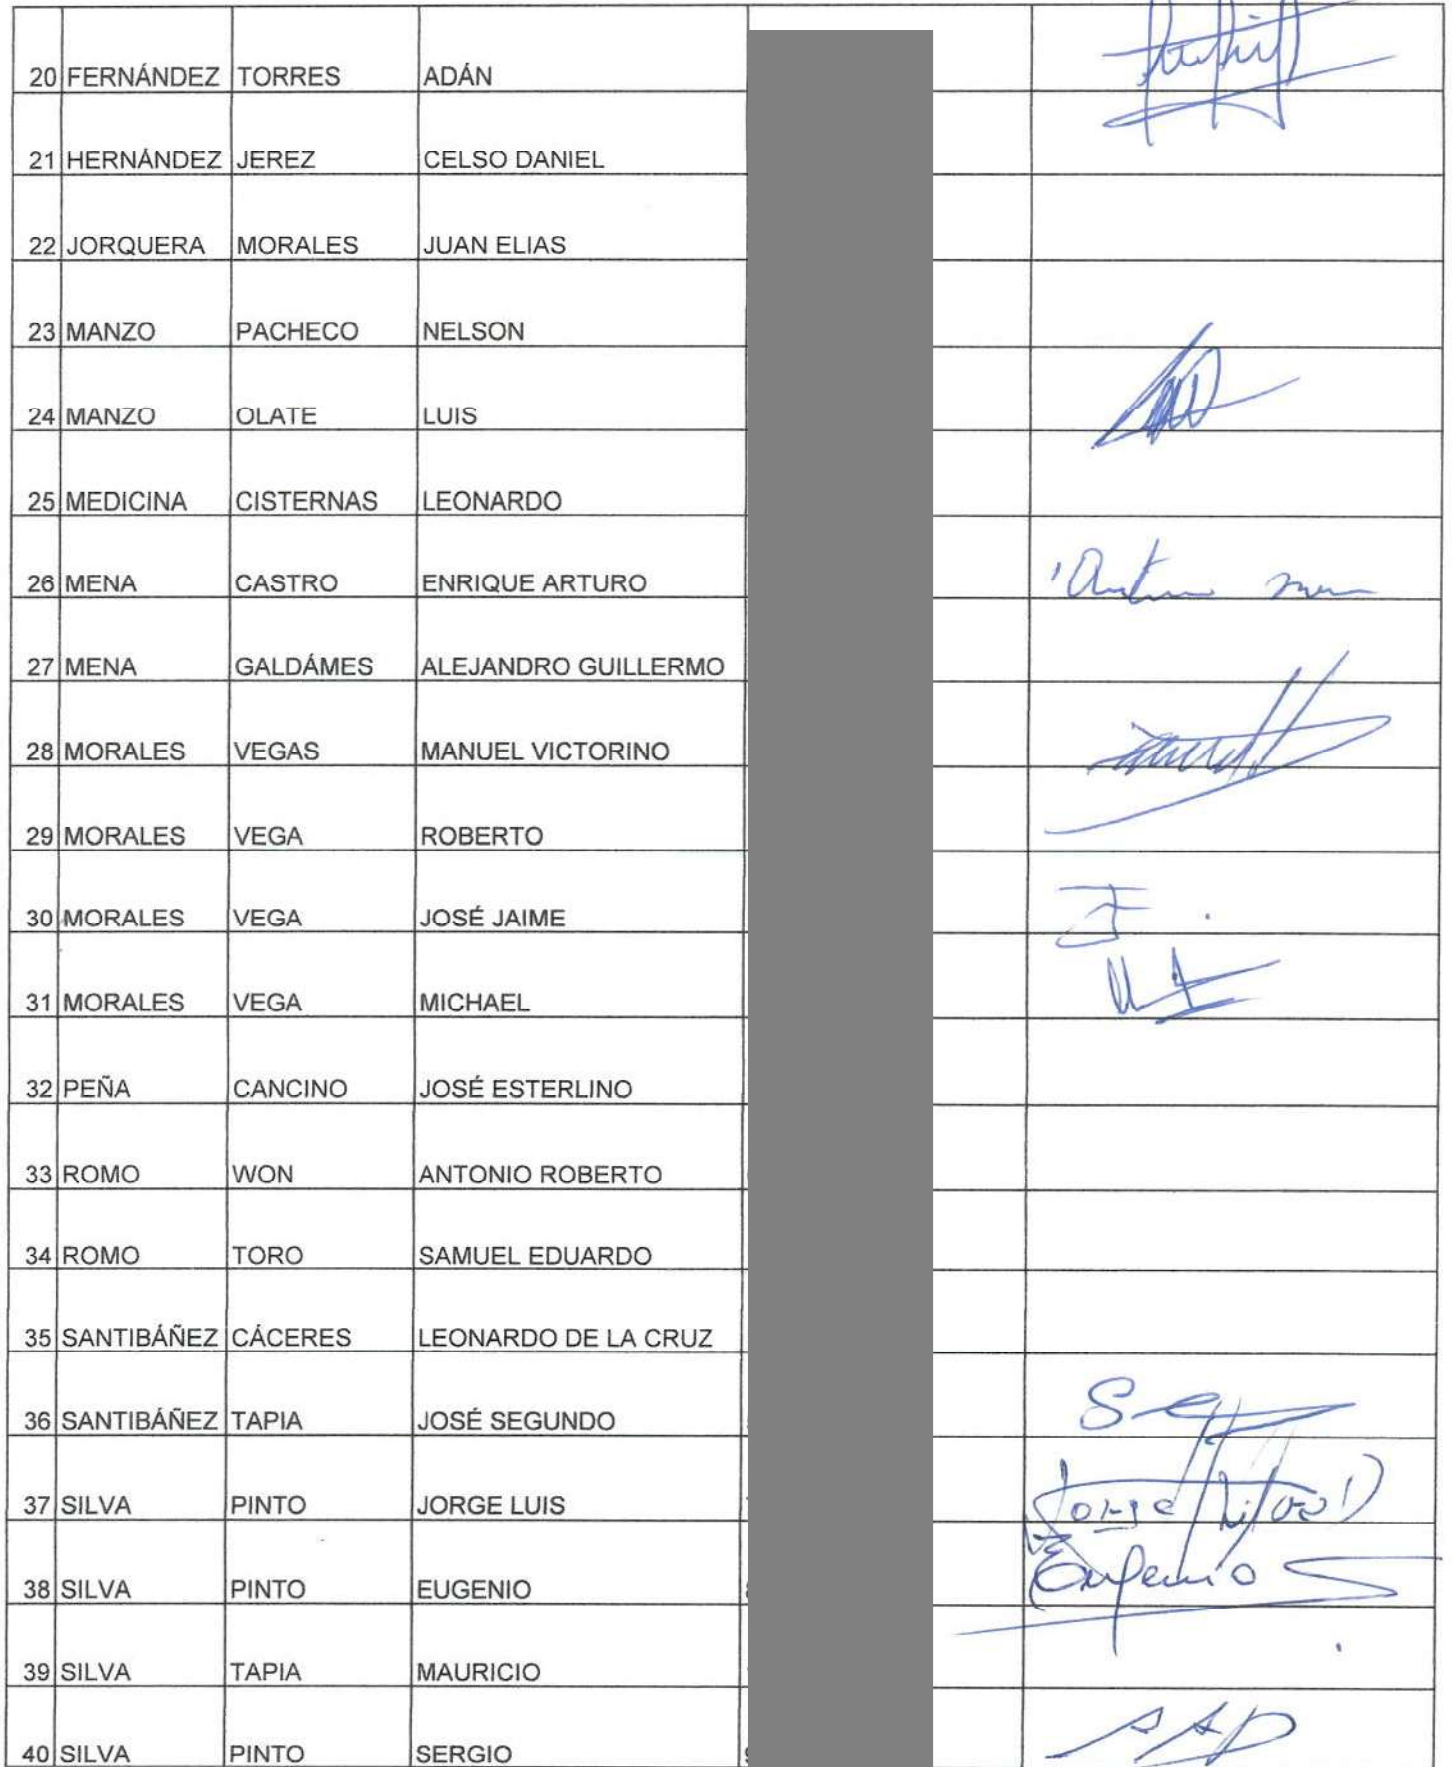 20 FERNÁNDEZ TORRES ADÁN
21 HERNÁNDEZ JEREZ CELSO DANIEL
22 JORQUERA MORALES JUAN ELIAS
23 MANZO PACHECO NELSON
24 MANZO OLATE LUIS
25 MEDICINA CISTERNAS LEONARDO
26 MENA CASTRO ENRIQUE ARTURO
27 MENA GALDÁMES ALEJANDRO GUILLERMO
28 MORALES VEGAS MANUEL VICTORINO
29 MORALES VEGA ROBERTO
30 MORALES VEGA JOSÉ JAIME
31 MORALES VEGA MICHAEL
32 PEÑA CANCINO JOSÉ ESTERLINO
33 ROMO WON ANTONIO ROBERTO
34 ROMO TORO SAMUEL EDUARDO
35 SANTIBÁÑEZ CÁCERES LEONARDO DE LA CRUZ
36 SANTIBÁÑEZ TAPIA JOSÉ SEGUNDO
37 SILVA PINTO JORGE LUIS Jorge
38 SILVA PINTO EUGENIO Eugenio S
39 SILVA TAPIA MAURICIO
40 SILVA PINTO SERGIO